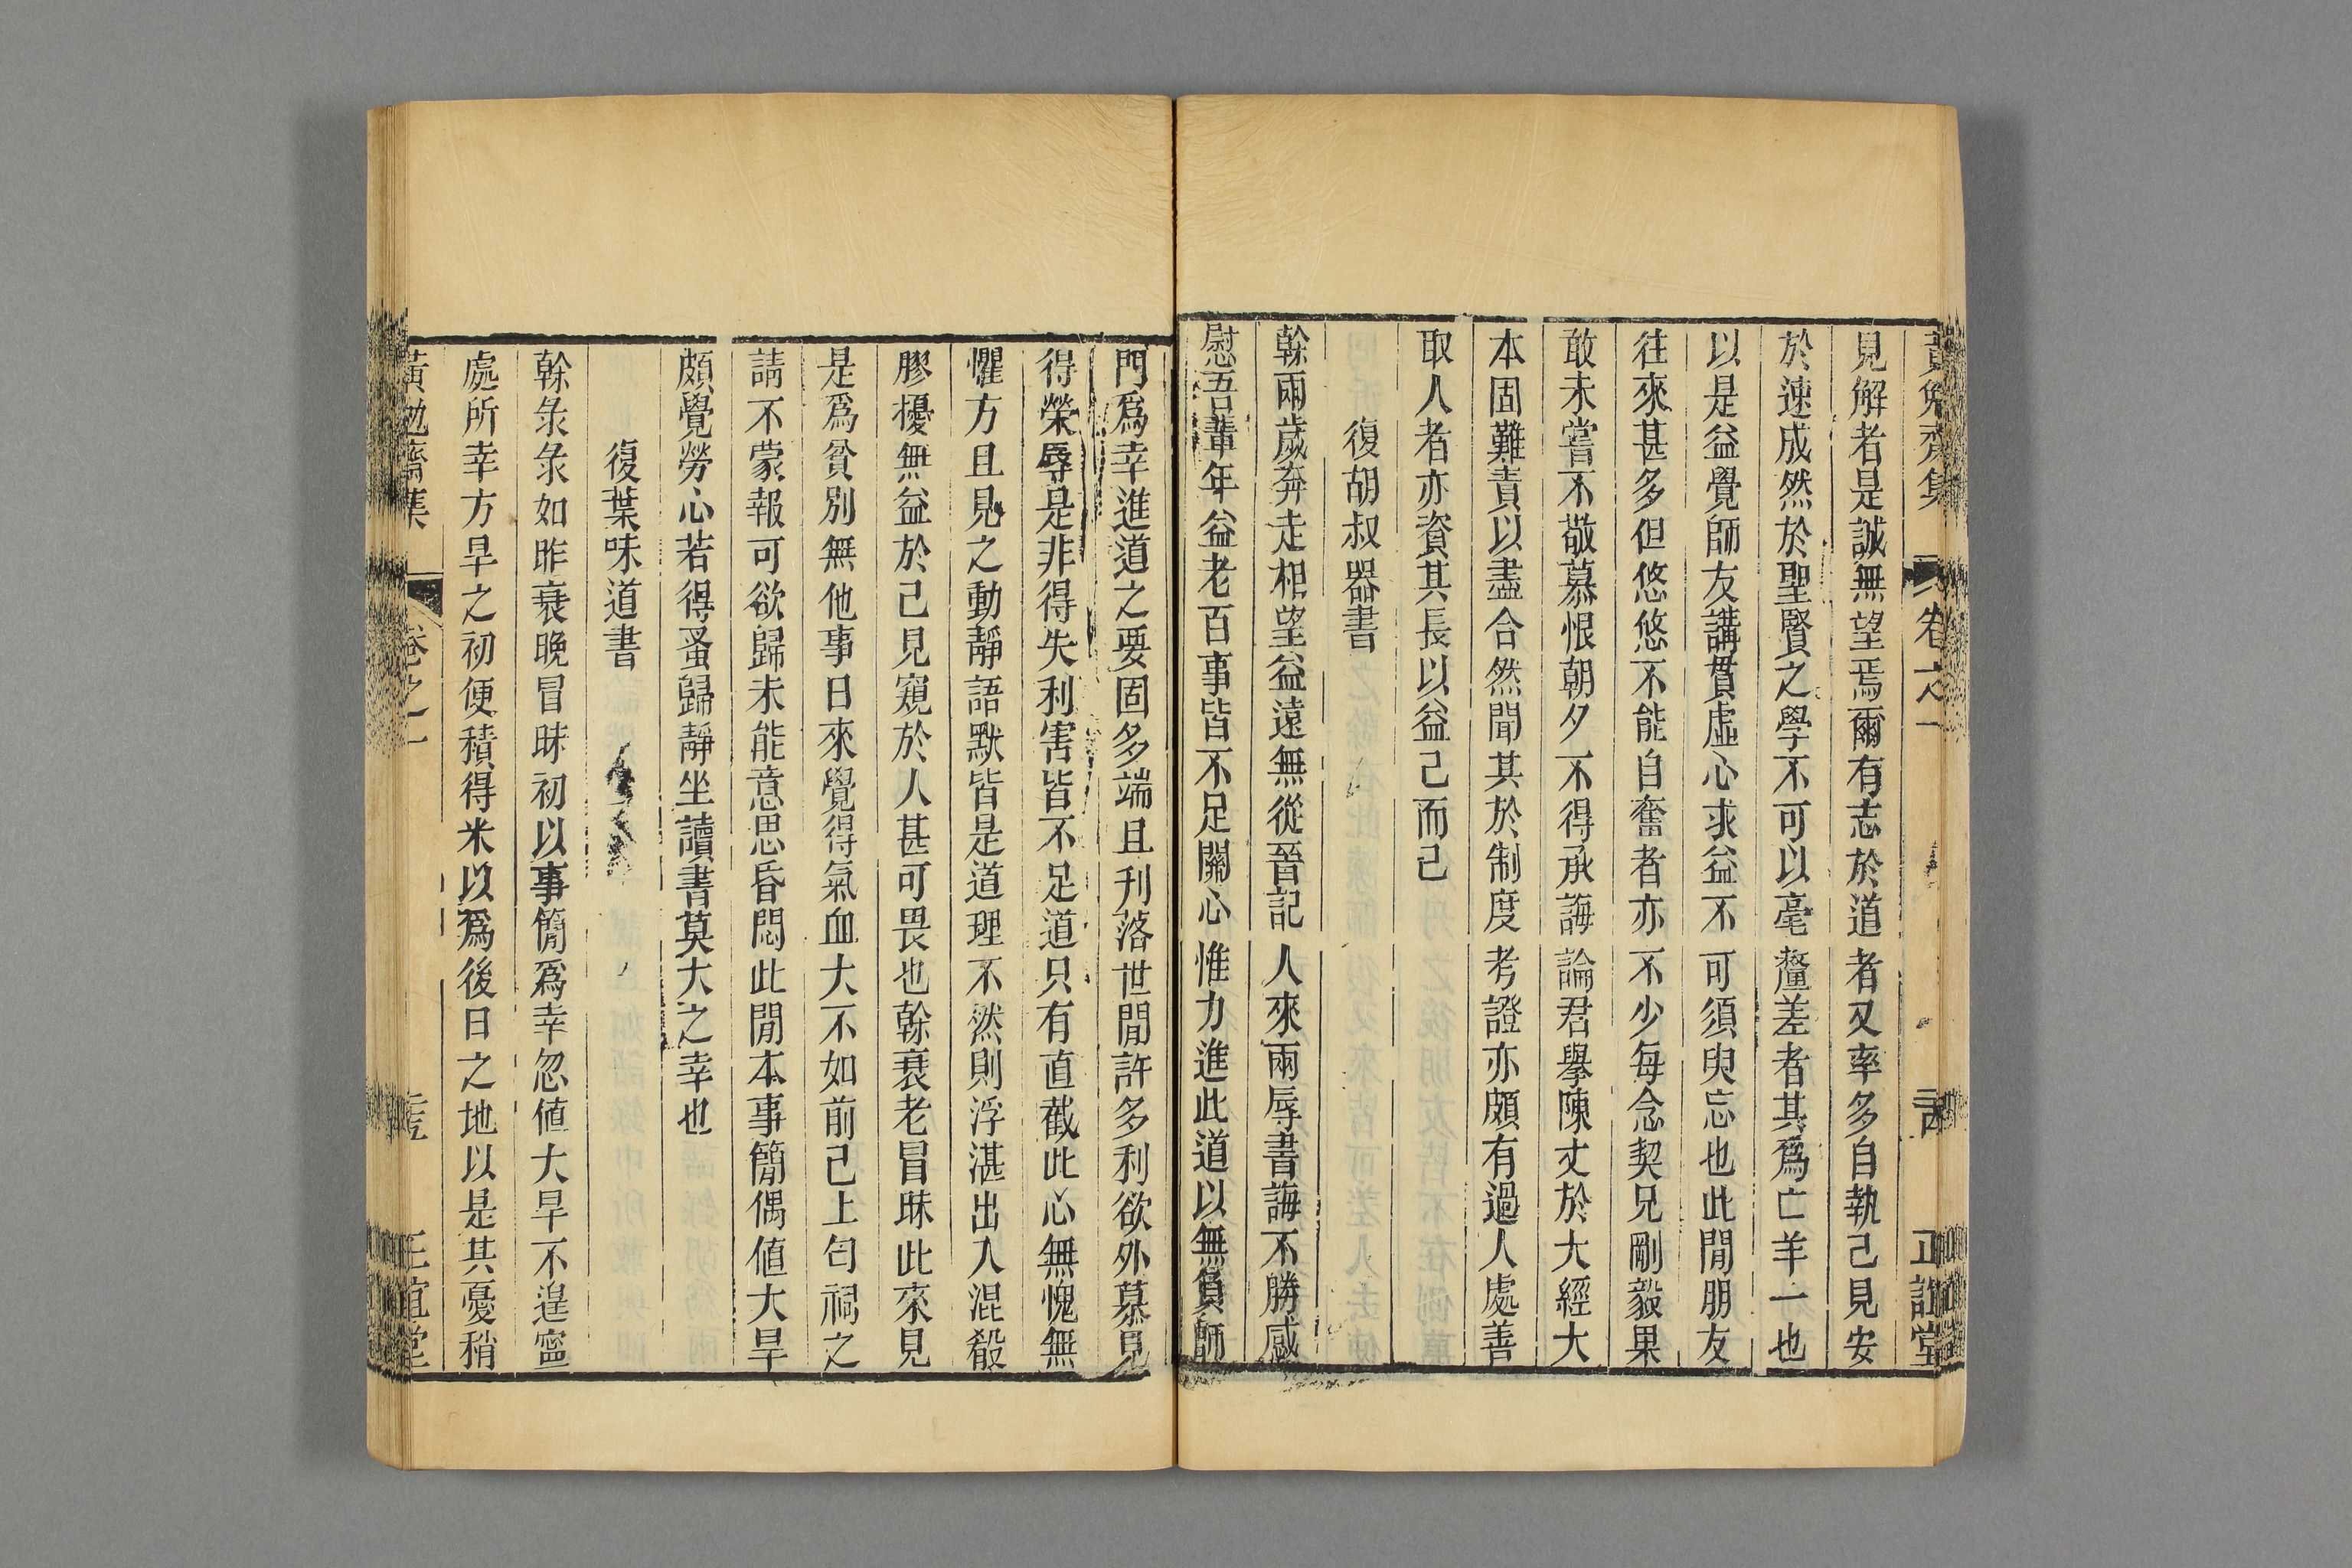 黃勉齋集 卷之一 正誼堂
見解者是誠無望焉爾有志於道者又率多自執己見安
於速成然於聖賢之學不可以毫釐差者其爲亡羊一也
以是益覺師友講貫虛心求益不可須臾忘也此閒朋友
往來甚多但悠悠不能自奮者亦不少每念契兄剛毅果
敢未嘗不敬慕恨朝夕不得承誨論君舉陳丈於大經大
本固難責以盡合然聞其於制度考證亦頗有過人處善
取人者亦資其長以益己而已
復胡叔器書
榦兩歲奔走相望益遠無從音記人來兩辱書誨不勝感
慰吾輩年益老百事皆不足關心惟力進此道以無負師
門爲幸進道之要固多端且刋落世閒許多利欲外慕見
得榮辱是非得失利害皆不足道只有直截此心無愧無
懼方且見之動靜語默皆是道理不然則浮湛出入混殽
膠擾無益於己見窺於人甚可畏也榦衰老冒昧此來見
是爲貧別無他事日來覺得氣血大不如前已上匄祠之
請不蒙報可欲歸未能意思昏悶此閒本事簡偶値大旱
頗覺勞心若得蚤歸靜坐讀書莫大之幸也
復葉味道書
榦彔彔如昨衰晚冒昧初以事簡爲幸忽値大旱不遑寧
處所幸方旱之初便積得米以爲後日之地以是其憂稍
黃勉齋集 卷之一 正誼堂